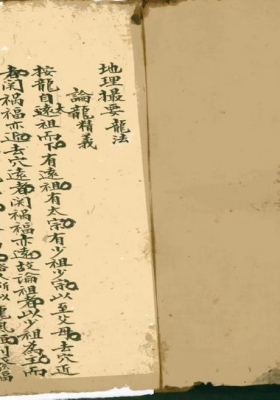 地理撮要龍法
論龍精義
按龍自遠太祖而下有遠祖有太宗有少祖少宗以至父母去穴近
者関禍福亦近去穴遠者関禍福亦遠故論祖者以少祖為主而